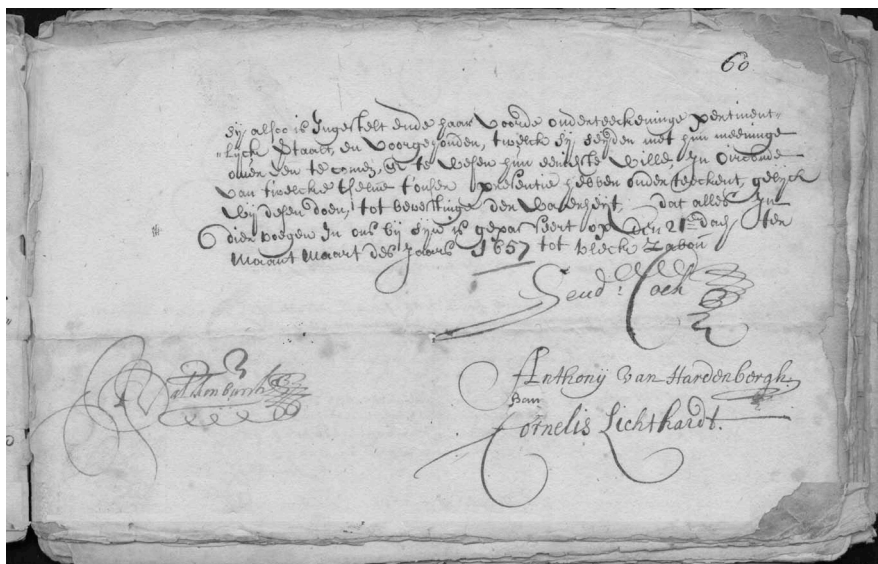 60
sij alsoo is Ingestelt ende haar voorde onderteeckeninge pertinent
lijck en voorgehouden, twelck sij seijden met hun meeninge
over een te comen, te wesen hun uijterste wille, In oirconde
van twelcke t'onser presentie hebben onderteeckent, gelijck
wij desen doen, tot bevestinge der waerheijt, dat alles In
dier voegen In ons bij sijn is gepasseert op den 21en dach ten
Maant Maart des Jaars 1657 tot
Anthonij van Hardenbergh.
van
Cornelis Lichthardt.